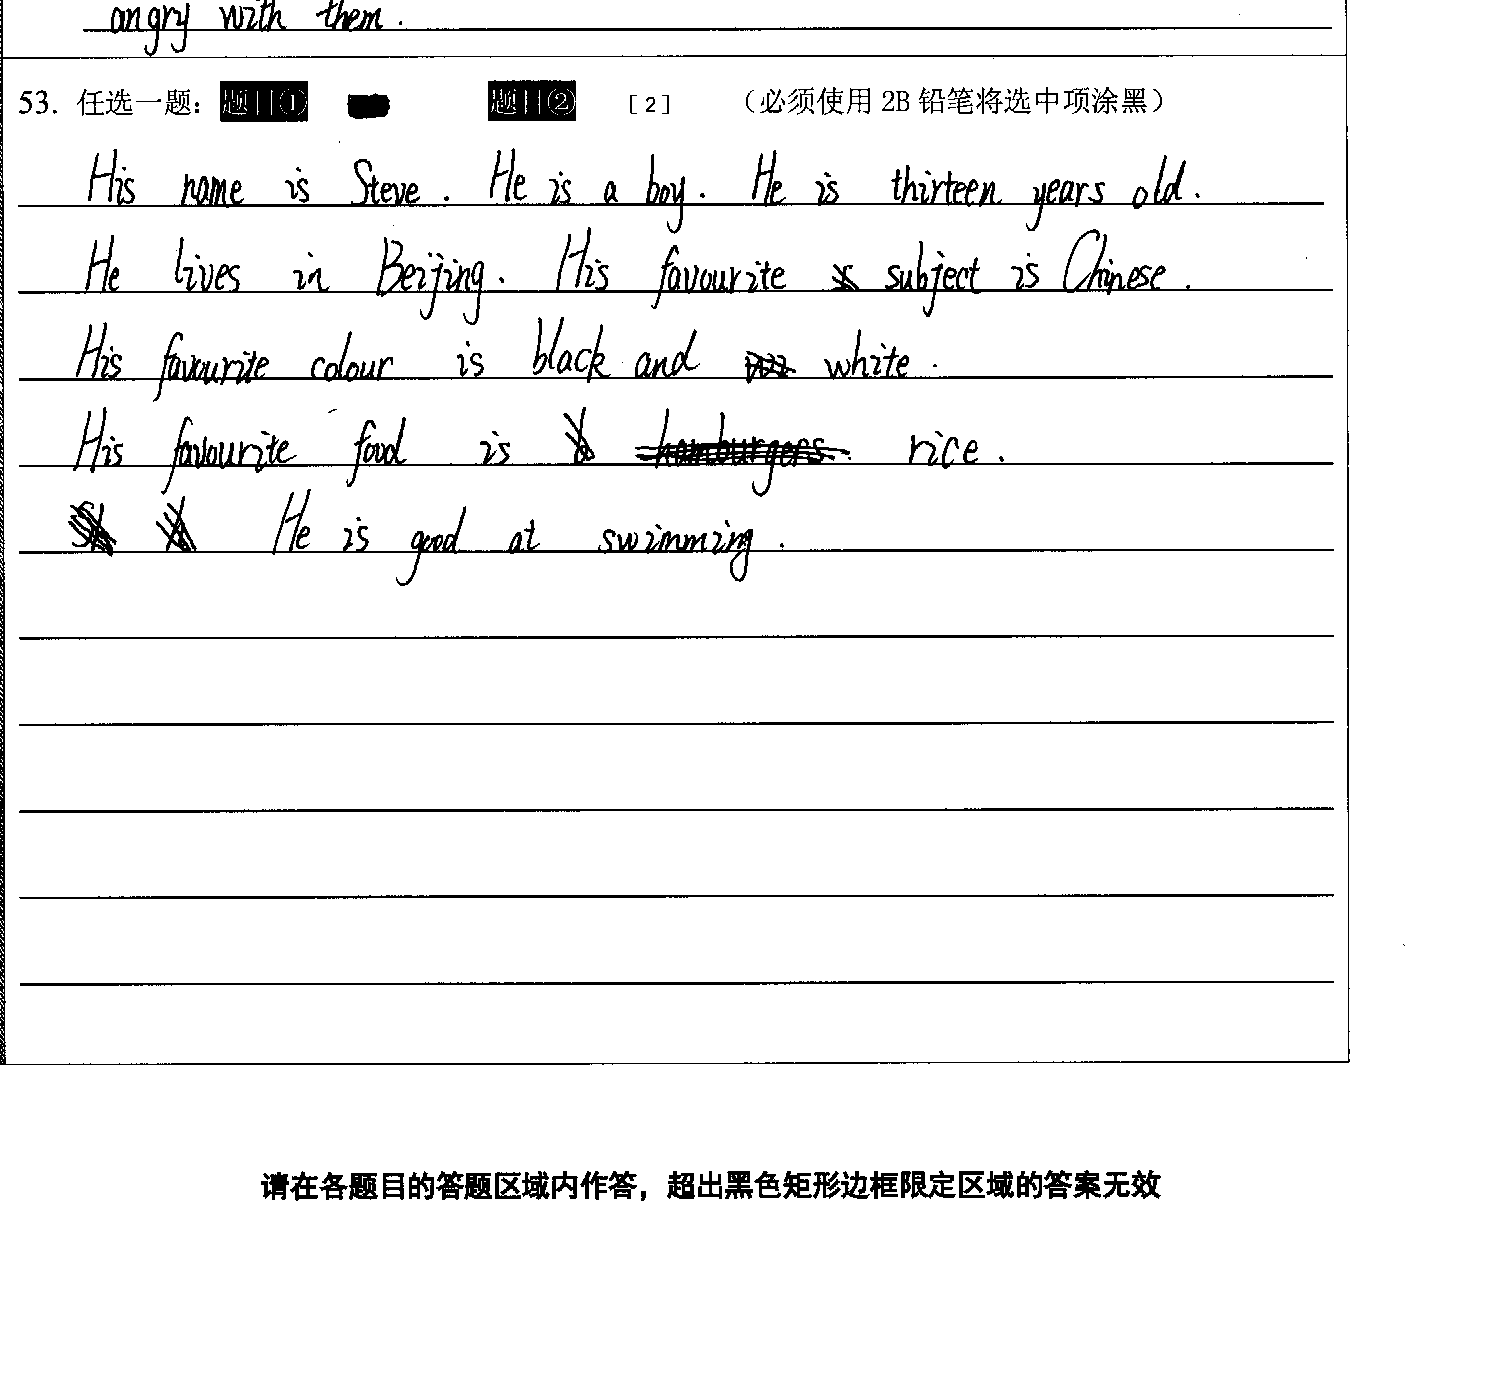 angry with them.
53. 任选一题： 题目① 题目② [2] （必须使用 2B 铅笔将选中项涂黑）
His name is Steve. He is a boy. He is thirteen years old.
He lives in Beijing. His favourite subject is Chinese.
His favourite colour is black and white.
His favourite food is hamburgers rice.
He is good at swimming.
请在各题目的答题区域内作答，超出黑色矩形边框限定区域的答案无效